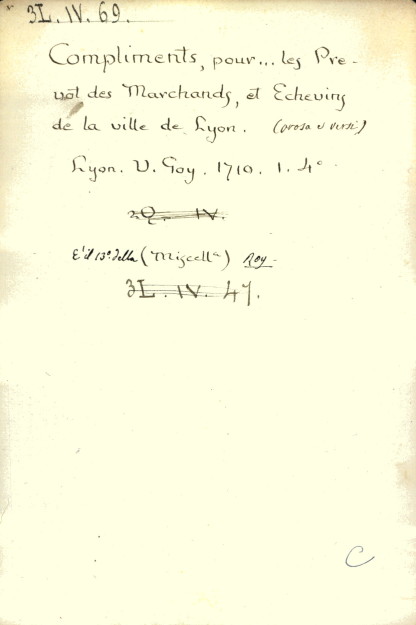 3L. IV. 69.
Compliments, pour... les Pre-
vôt des Marchands, et Echevins
de la ville de Lyon. (prosa e versi)
Lyon. V. Goy. 1710. 1. 4°.
2Q. IV.
E' il 13° della (Miscell.ª) Roy.
3L. IV. 47.
C